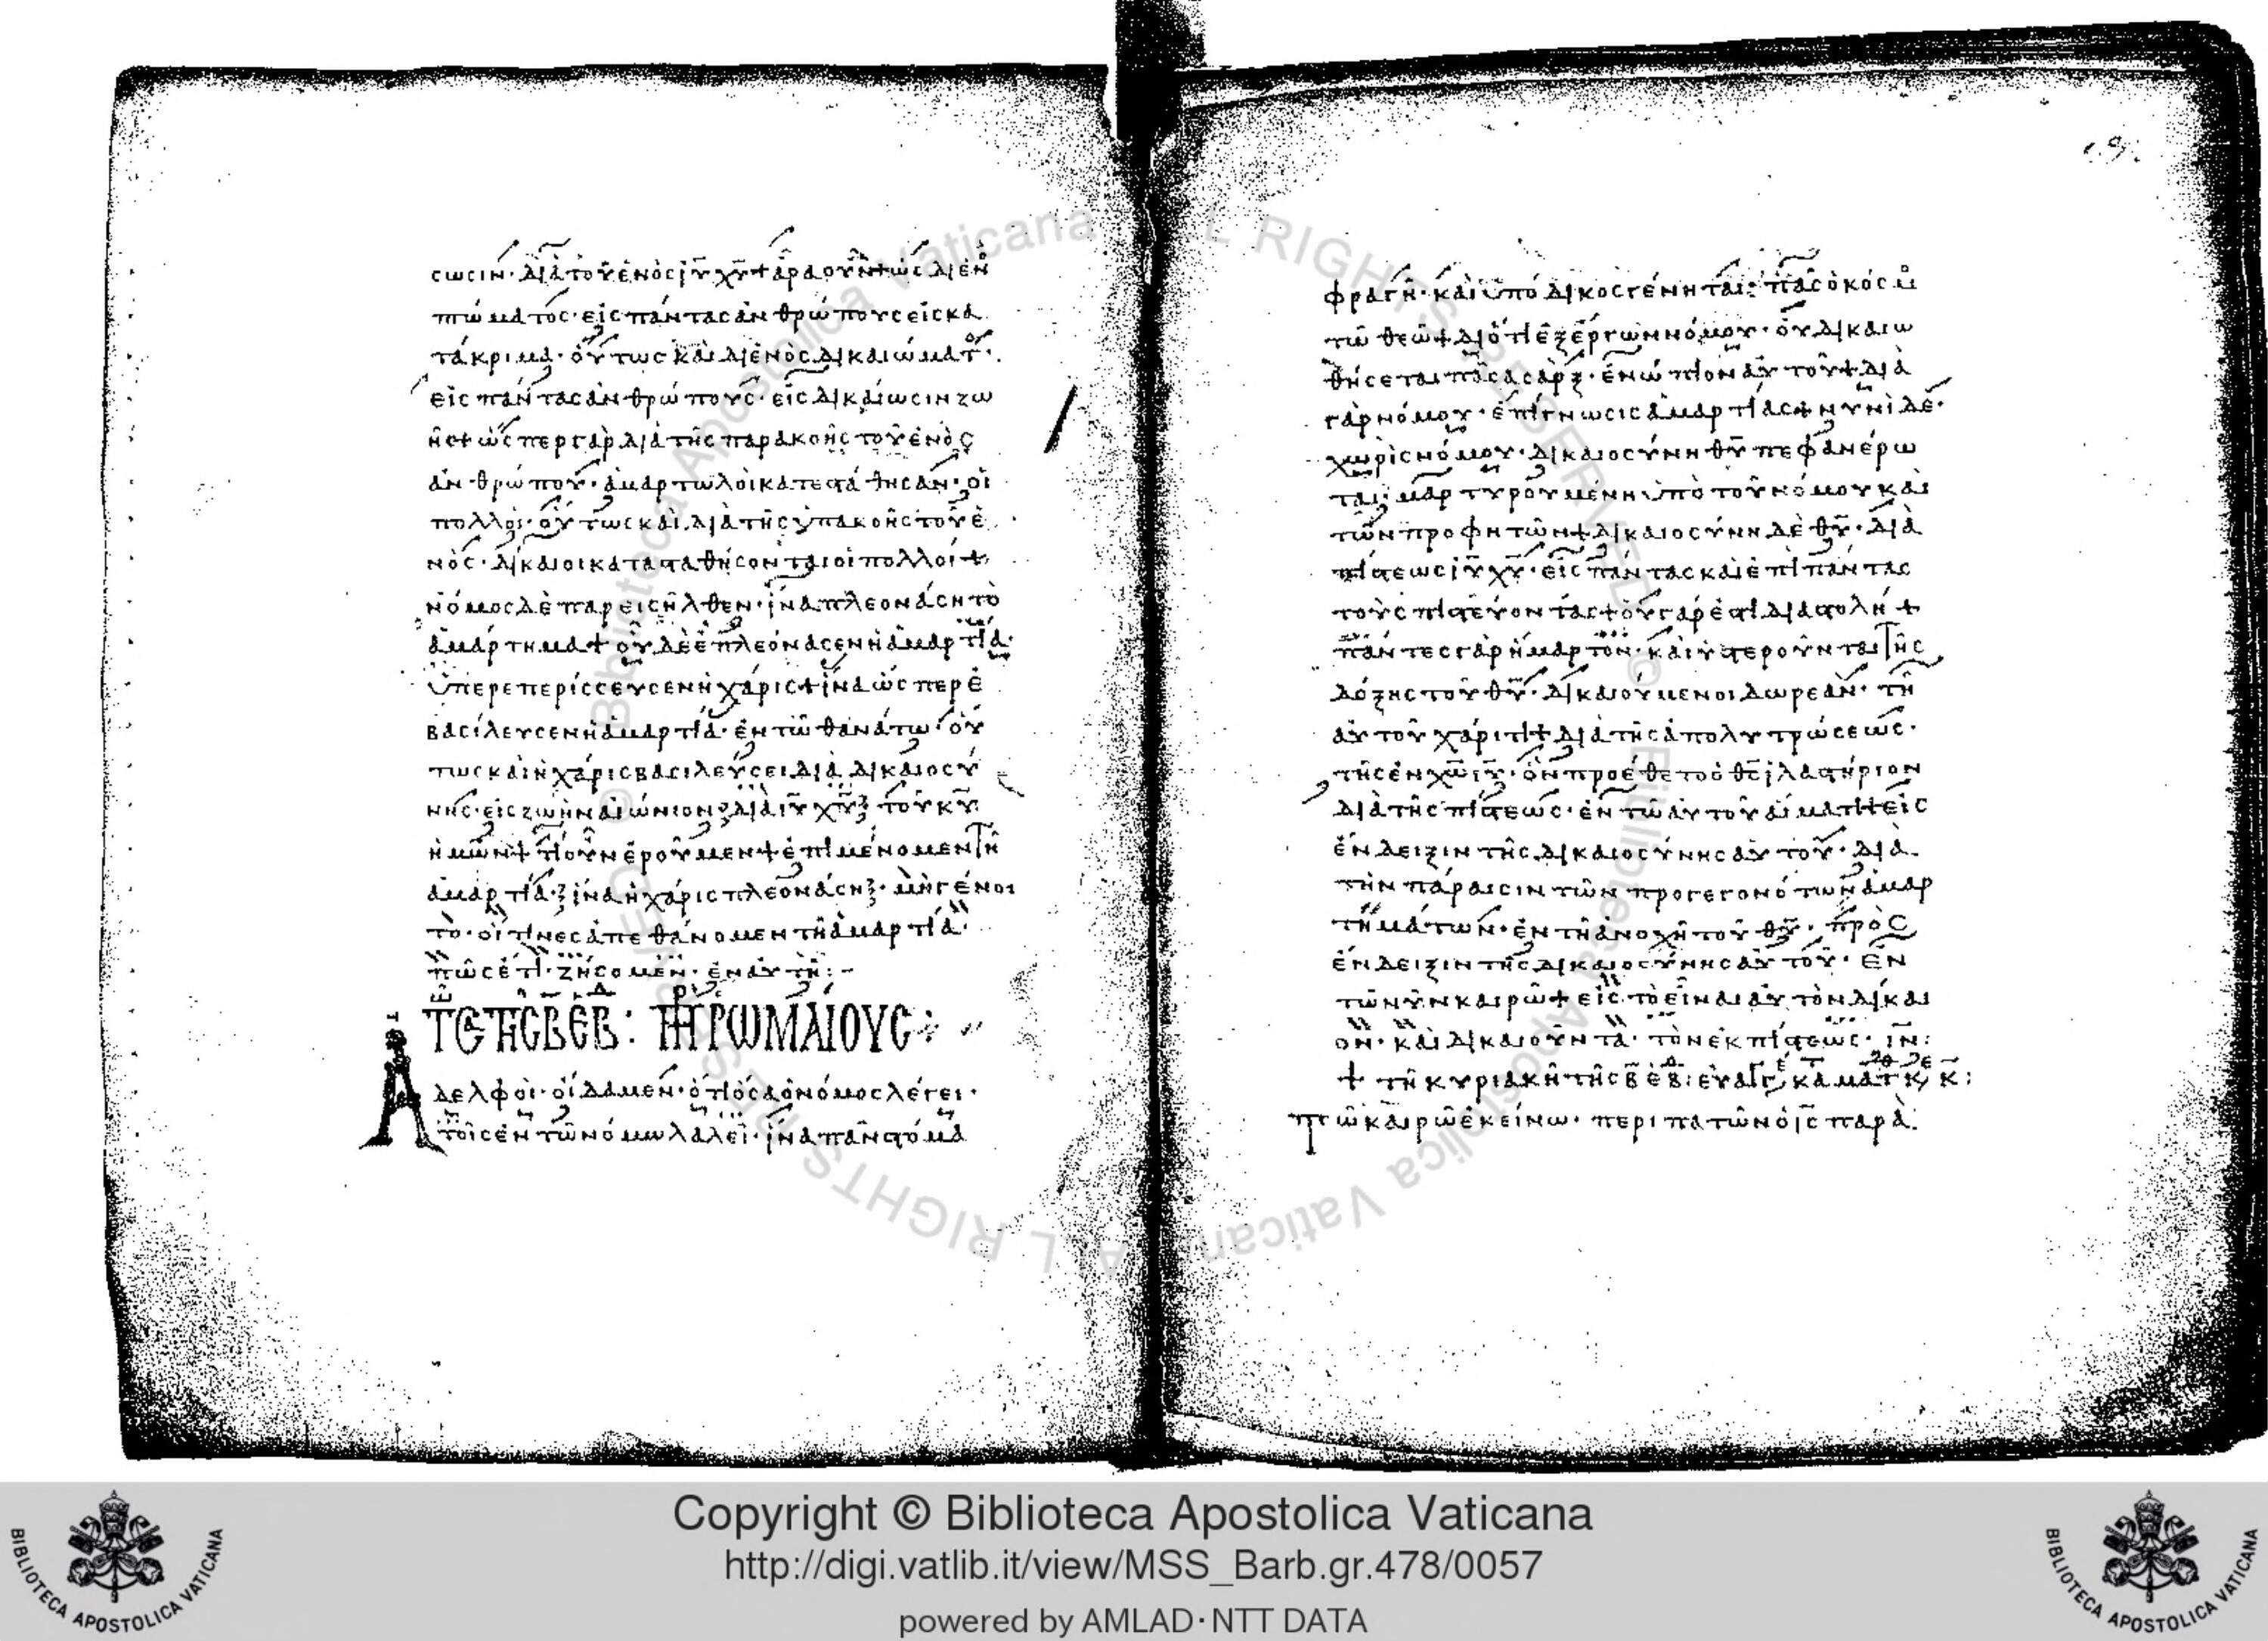 σωσιν· διὰ τοῦ ἑνὸς ἰῦ χῦ + ἄρα οὖν ὡς δι' ἑνὸ
πτώματος· εἰς πάντας ἀνθρώπους εἰς κα
τάκριμα· οὕτως καὶ δι' ἑνὸς δικαιώματο·
εἰς πάντας ἀνθρώπους· εἰς δικαίωσιν ζω
ῆς + ὥσπερ γὰρ διὰ τῆς παρακοῆς τοῦ ἑνὸς
ἀνθρώπου· ἁμαρτωλοὶ κατεστάθησαν· οἱ
πολλοί· οὕτως καὶ διὰ τῆς ὑπακοῆς τοῦ ἑ
νὸς· δίκαιοι κατασταθήσονται οἱ πολλοί +
νόμος δὲ παρεισῆλθεν· ἵνα πλεονάση τὸ
ἁμάρτημα + οὗ δὲ ἐπλεόνασεν ἡ ἁμαρτία·
ὑπερεπερίσσευσεν ἡ χάρις + ἵνα ὥσπερ ἐ
βασίλευσεν ἡ ἁμαρτία· ἐν τῶ θανάτω· οὕ
τως καὶ ἡ χάρις βασιλεύσει διὰ δικαιοσύ
νης· εἰς ζωὴν αἰώνιον· διὰ ἰῦ χῦ τοῦ κῦ
ἡμῶν + τί οὖν ἐροῦμεν + ἐπιμένομεν τῆ
ἁμαρτία· ἵνα ἡ χάρις πλεονάση· μὴ γένοι
το· οἵτινες ἀπεθάνομεν τῆ ἁμαρτία·
πῶς ἔτι ζήσομεν· ἐν αὐτῆ:-
ΡΩΜΑΙΟΥΣ
Ἀδελφοὶ· οἴδαμεν· ὅτι ὅσα ὁ νόμος λέγει·
τοῖς ἐν τῶ νόμω λαλεῖ· ἵνα πᾶν στόμα
φραγῆ· καὶ ὑπόδικος γένηται πᾶς ὁ κόσμο
τῶ θεῶ + διότι ἐξ ἔργων νόμου· οὐ δικαιω
θήσεται πᾶσα σὰρξ· ἐνώπιον αὐτοῦ + διὰ
γὰρ νόμου· ἐπίγνωσις ἁμαρτίας + νυνὶ δὲ·
χωρὶς νόμου· δικαιοσύνη θῦ πεφανέρω
ται· μαρτυρουμένη ὑπὸ τοῦ νόμου καὶ
τῶν προφητῶν + δικαιοσύνη δὲ θῦ· διὰ
πίστεως ἰῦ χῦ· εἰς πάντας καὶ ἐπὶ πάντας
τοὺς πιστεύοντας + οὐ γάρ ἐστι διαστολή +
πάντες γὰρ ἥμαρτον· καὶ ὑστεροῦνται τῆς
δόξης τοῦ θῦ· δικαιούμενοι δωρεὰν· τῆ
αὐτοῦ χάριτι + διὰ τῆς ἀπολυτρώσεως·
τῆς ἐν χῶ ἰῦ· ὃν προέθετο ὁ θς ἱλαστήριον
διὰ τῆς πίστεως· ἐν τῶ αὐτοῦ αἵματι + εἰς
ἔνδειξιν τῆς δικαιοσύνης αὐτοῦ· διὰ
τὴν πάρεσιν τῶν προγεγονότων ἁμαρ
τημάτων· ἐν τῆ ἀνοχῆ τοῦ θῦ· πρὸς
ἔνδειξιν τῆς δικαιοσύνης αὐτοῦ· ἐν
τῶ νῦν καιρῶ + εἰς τὸ εἶναι αὐτὸν δίκαι
ον· καὶ δικαιοῦντα· τὸν ἐκ πίστεως· ἰῦ:
+ τῆ κυριακῆ τῆς
τῶ καιρῶ ἐκείνω· περιπατῶν ὁ ἰς παρὰ
Copyright © Biblioteca Apostolica Vaticana
http://digi.vatlib.it/view/MSS_Barb.gr.478/0057
powered by AMLAD·NTT DATA
BIBLIOTECA APOSTOLICA VATICANA
BIBLIOTECA APOSTOLICA VATICANA